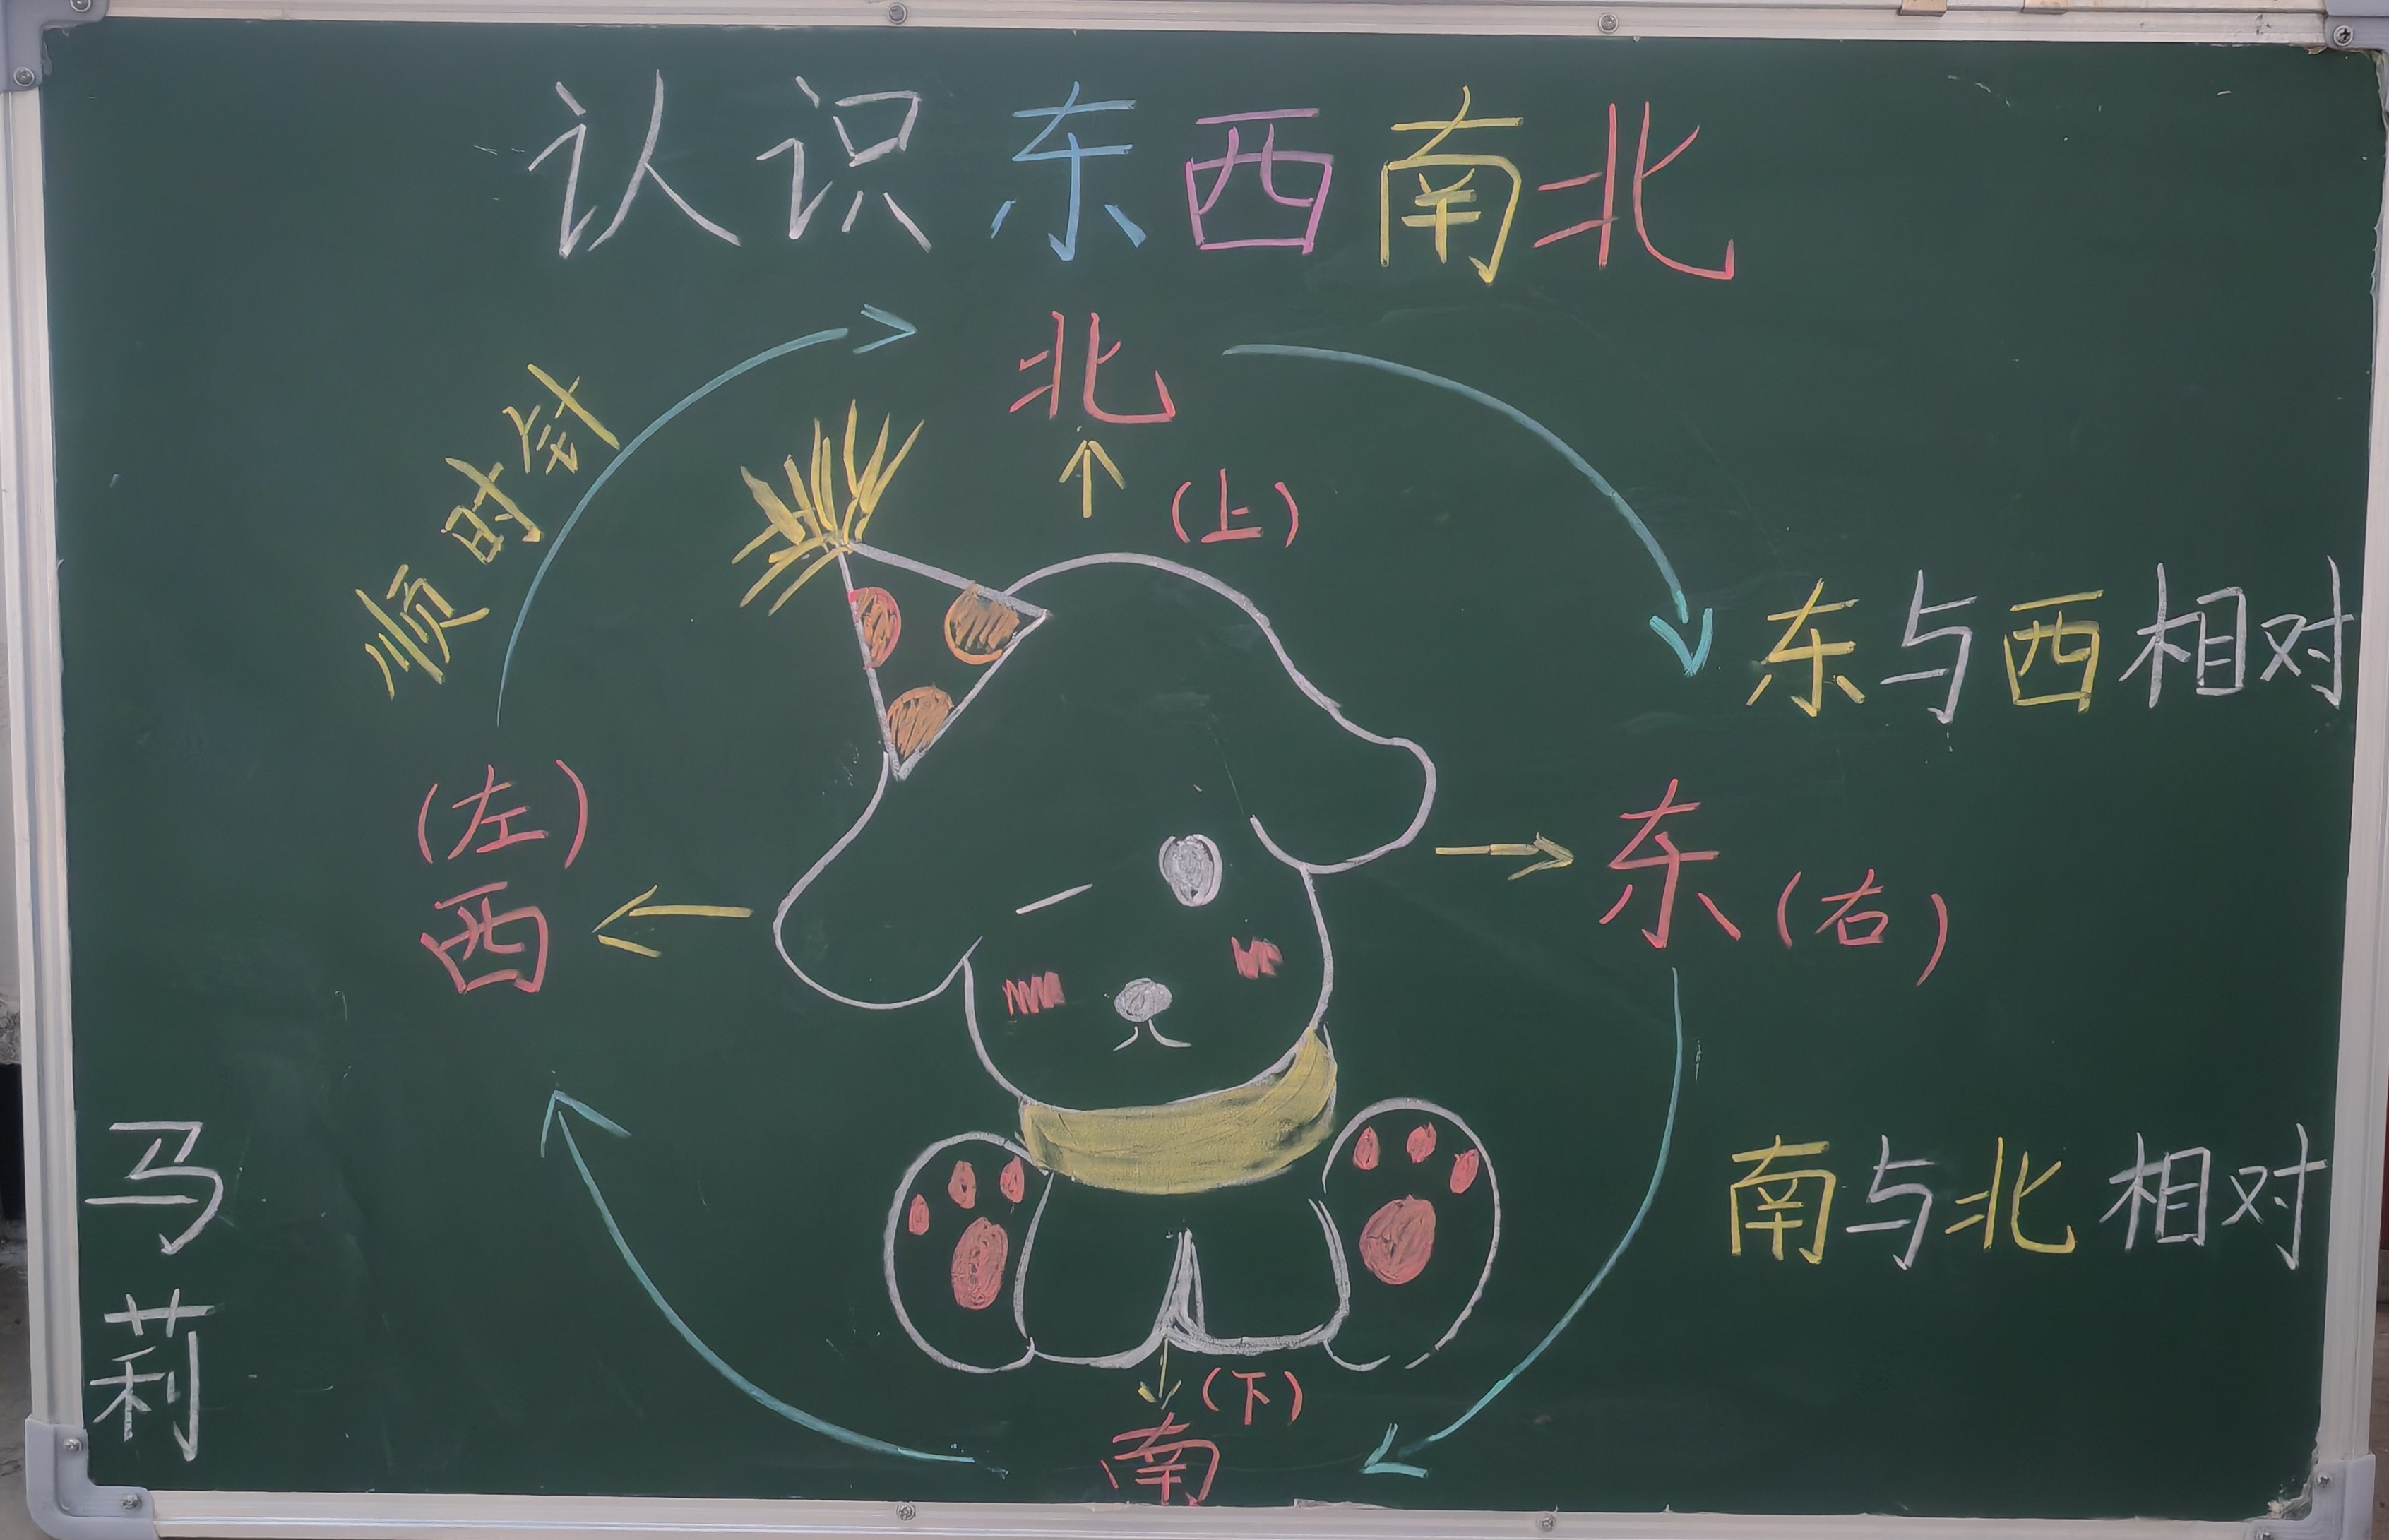 认识东西南北
北
(上)
顺时针
东与西相对
(左)
西
东(右)
南与北相对
(下)
南
马莉